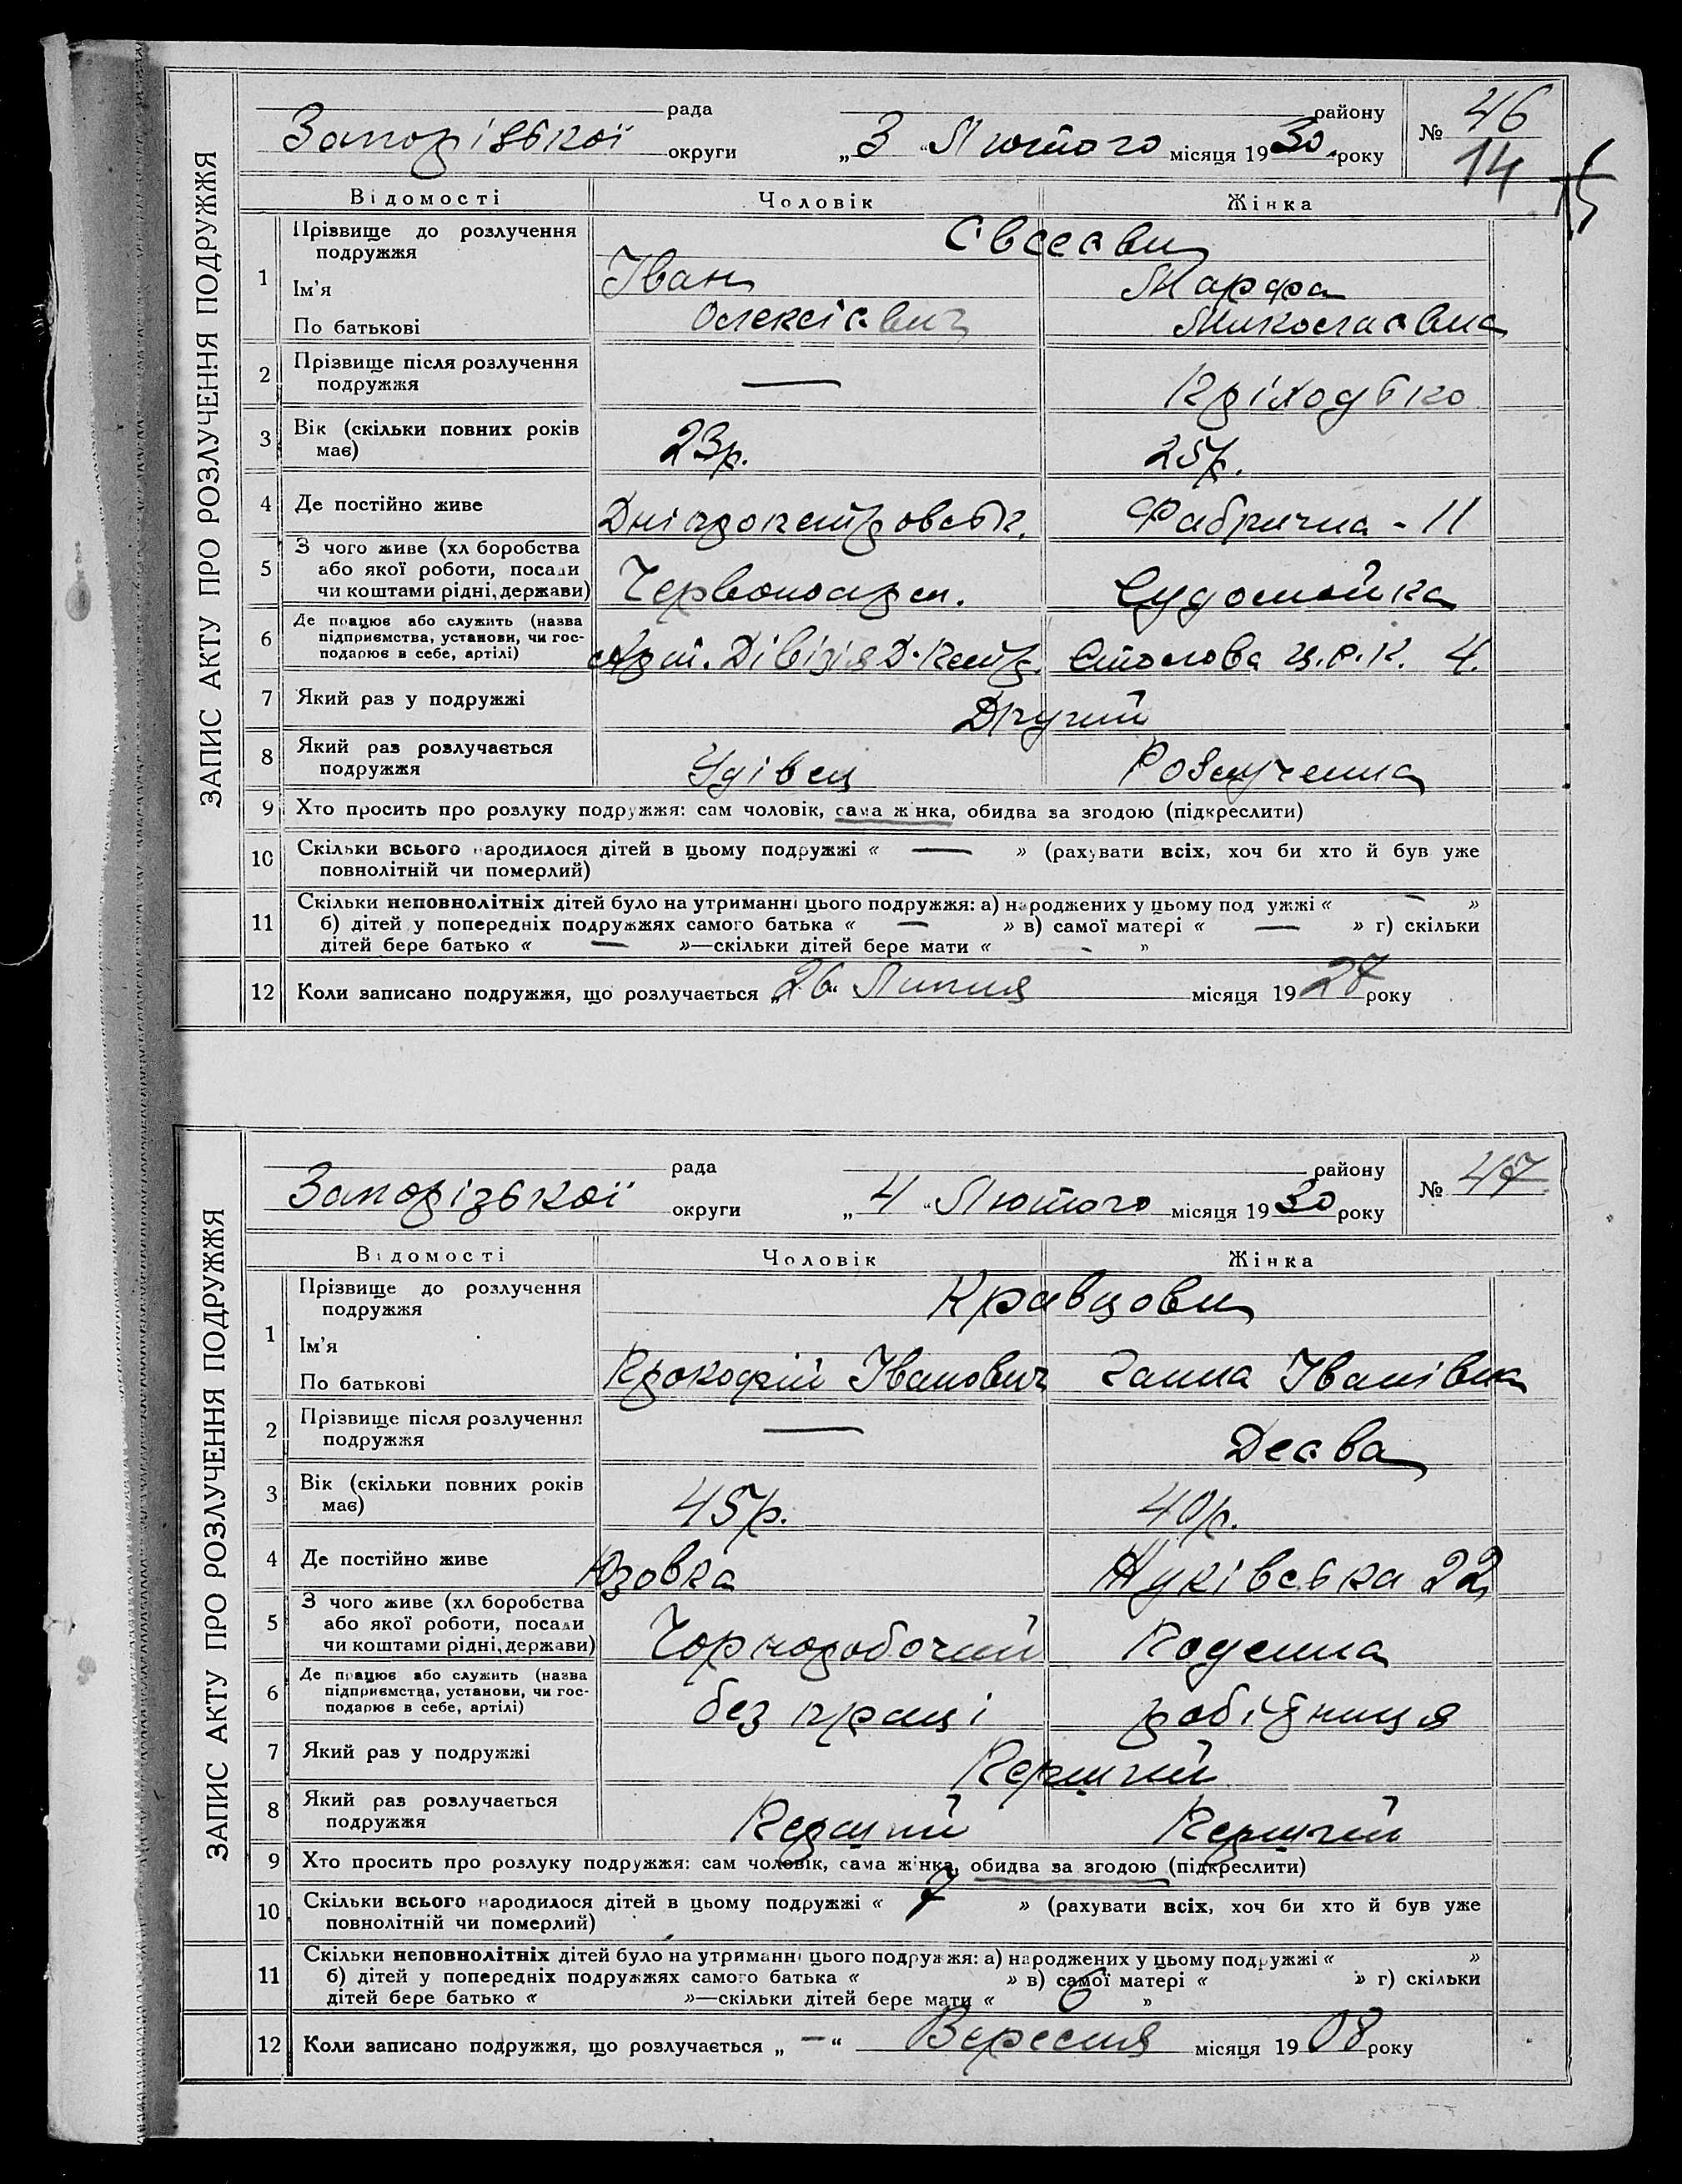 ЗАПИС АКТУ ПРО РОЗЛУЧЕННЯ ПОДРУЖЖЯ
рада району № 46
Запорізької округи „3“ Лютого місяця 1930 року 14
Відомості Чоловік Жінка
1 Прізвище до розлучення Євсеєви
подружжя
Ім'я Іван Марфа
По батькові Олексієвич Миколаєвна
2 Прізвище після розлучення
подружжя — Пріходько
3 Вік (скільки повних років
має) 23р. 25р.
4 Де постійно живе Дніпропетровськ. Фабрична - 11
5 З чого живе (хлiборобства
або якої роботи, посади
чи коштами рідні, держави) Червоноарм. Судомойка
6 Де працює або служить (назва
підприємства, установи, чи гос-
подарює в себе, артілі) Арт. Дівізія Д-Петр. Столова ц.р.к. 4.
7 Який раз у подружжі Другий
8 Який раз розлучається
подружжя Удівец Розлученна
9 Хто просить про розлуку подружжя: сам чоловік, сама жінка, обидва за згодою (підкреслити)
10 Скільки всього народилося дітей в цьому подружжі « — » (рахувати всіх, хоч би хто й був уже
повнолітній чи померлий)
11 Скільки неповнолітніх дітей було на утриманні цього подружжя: а) народжених у цьому подружжі « — »
б) дітей у попередніх подружжях самого батька « — » в) самої матері « — » г) скільки
дітей бере батько « — »—скільки дітей бере мати « - »
12 Коли записано подружжя, що розлучається „26“ Липня місяця 1927 року
ЗАПИС АКТУ ПРО РОЗЛУЧЕННЯ ПОДРУЖЖЯ
рада району № 47
Запорізької округи „4“ Лютого місяця 1930 року
Відомості Чоловік Жінка
1 Прізвище до розлучення Кравцови
подружжя
Ім'я
По батькові Прокофій Іванович Ганна Іванівна
2 Прізвище після розлучення
подружжя — Деєва
3 Вік (скільки повних років
має) 45р. 40р.
4 Де постійно живе Юзовка Жуківська 22
5 З чого живе (хлiборобства
або якої роботи, посади
чи коштами рідні, держави) Чорноробочий Поденна
6 Де працює або служить (назва
підприємства, установи, чи гос-
подарює в себе, артілі) без праці робітниця
7 Який раз у подружжі Перший
8 Який раз розлучається
подружжя Перший Перший
9 Хто просить про розлуку подружжя: сам чоловік, сама жінка, обидва за згодою (підкреслити)
10 Скільки всього народилося дітей в цьому подружжі « 7 » (рахувати всіх, хоч би хто й був уже
повнолітній чи померлий)
11 Скільки неповнолітніх дітей було на утриманні цього подружжя: а) народжених у цьому подружжі « »
б) дітей у попередніх подружжях самого батька « » в) самої матері « » г) скільки
дітей бере батько « »—скільки дітей бере мати « 6 »
12 Коли записано подружжя, що розлучається „—“ Вересня місяця 1908 року